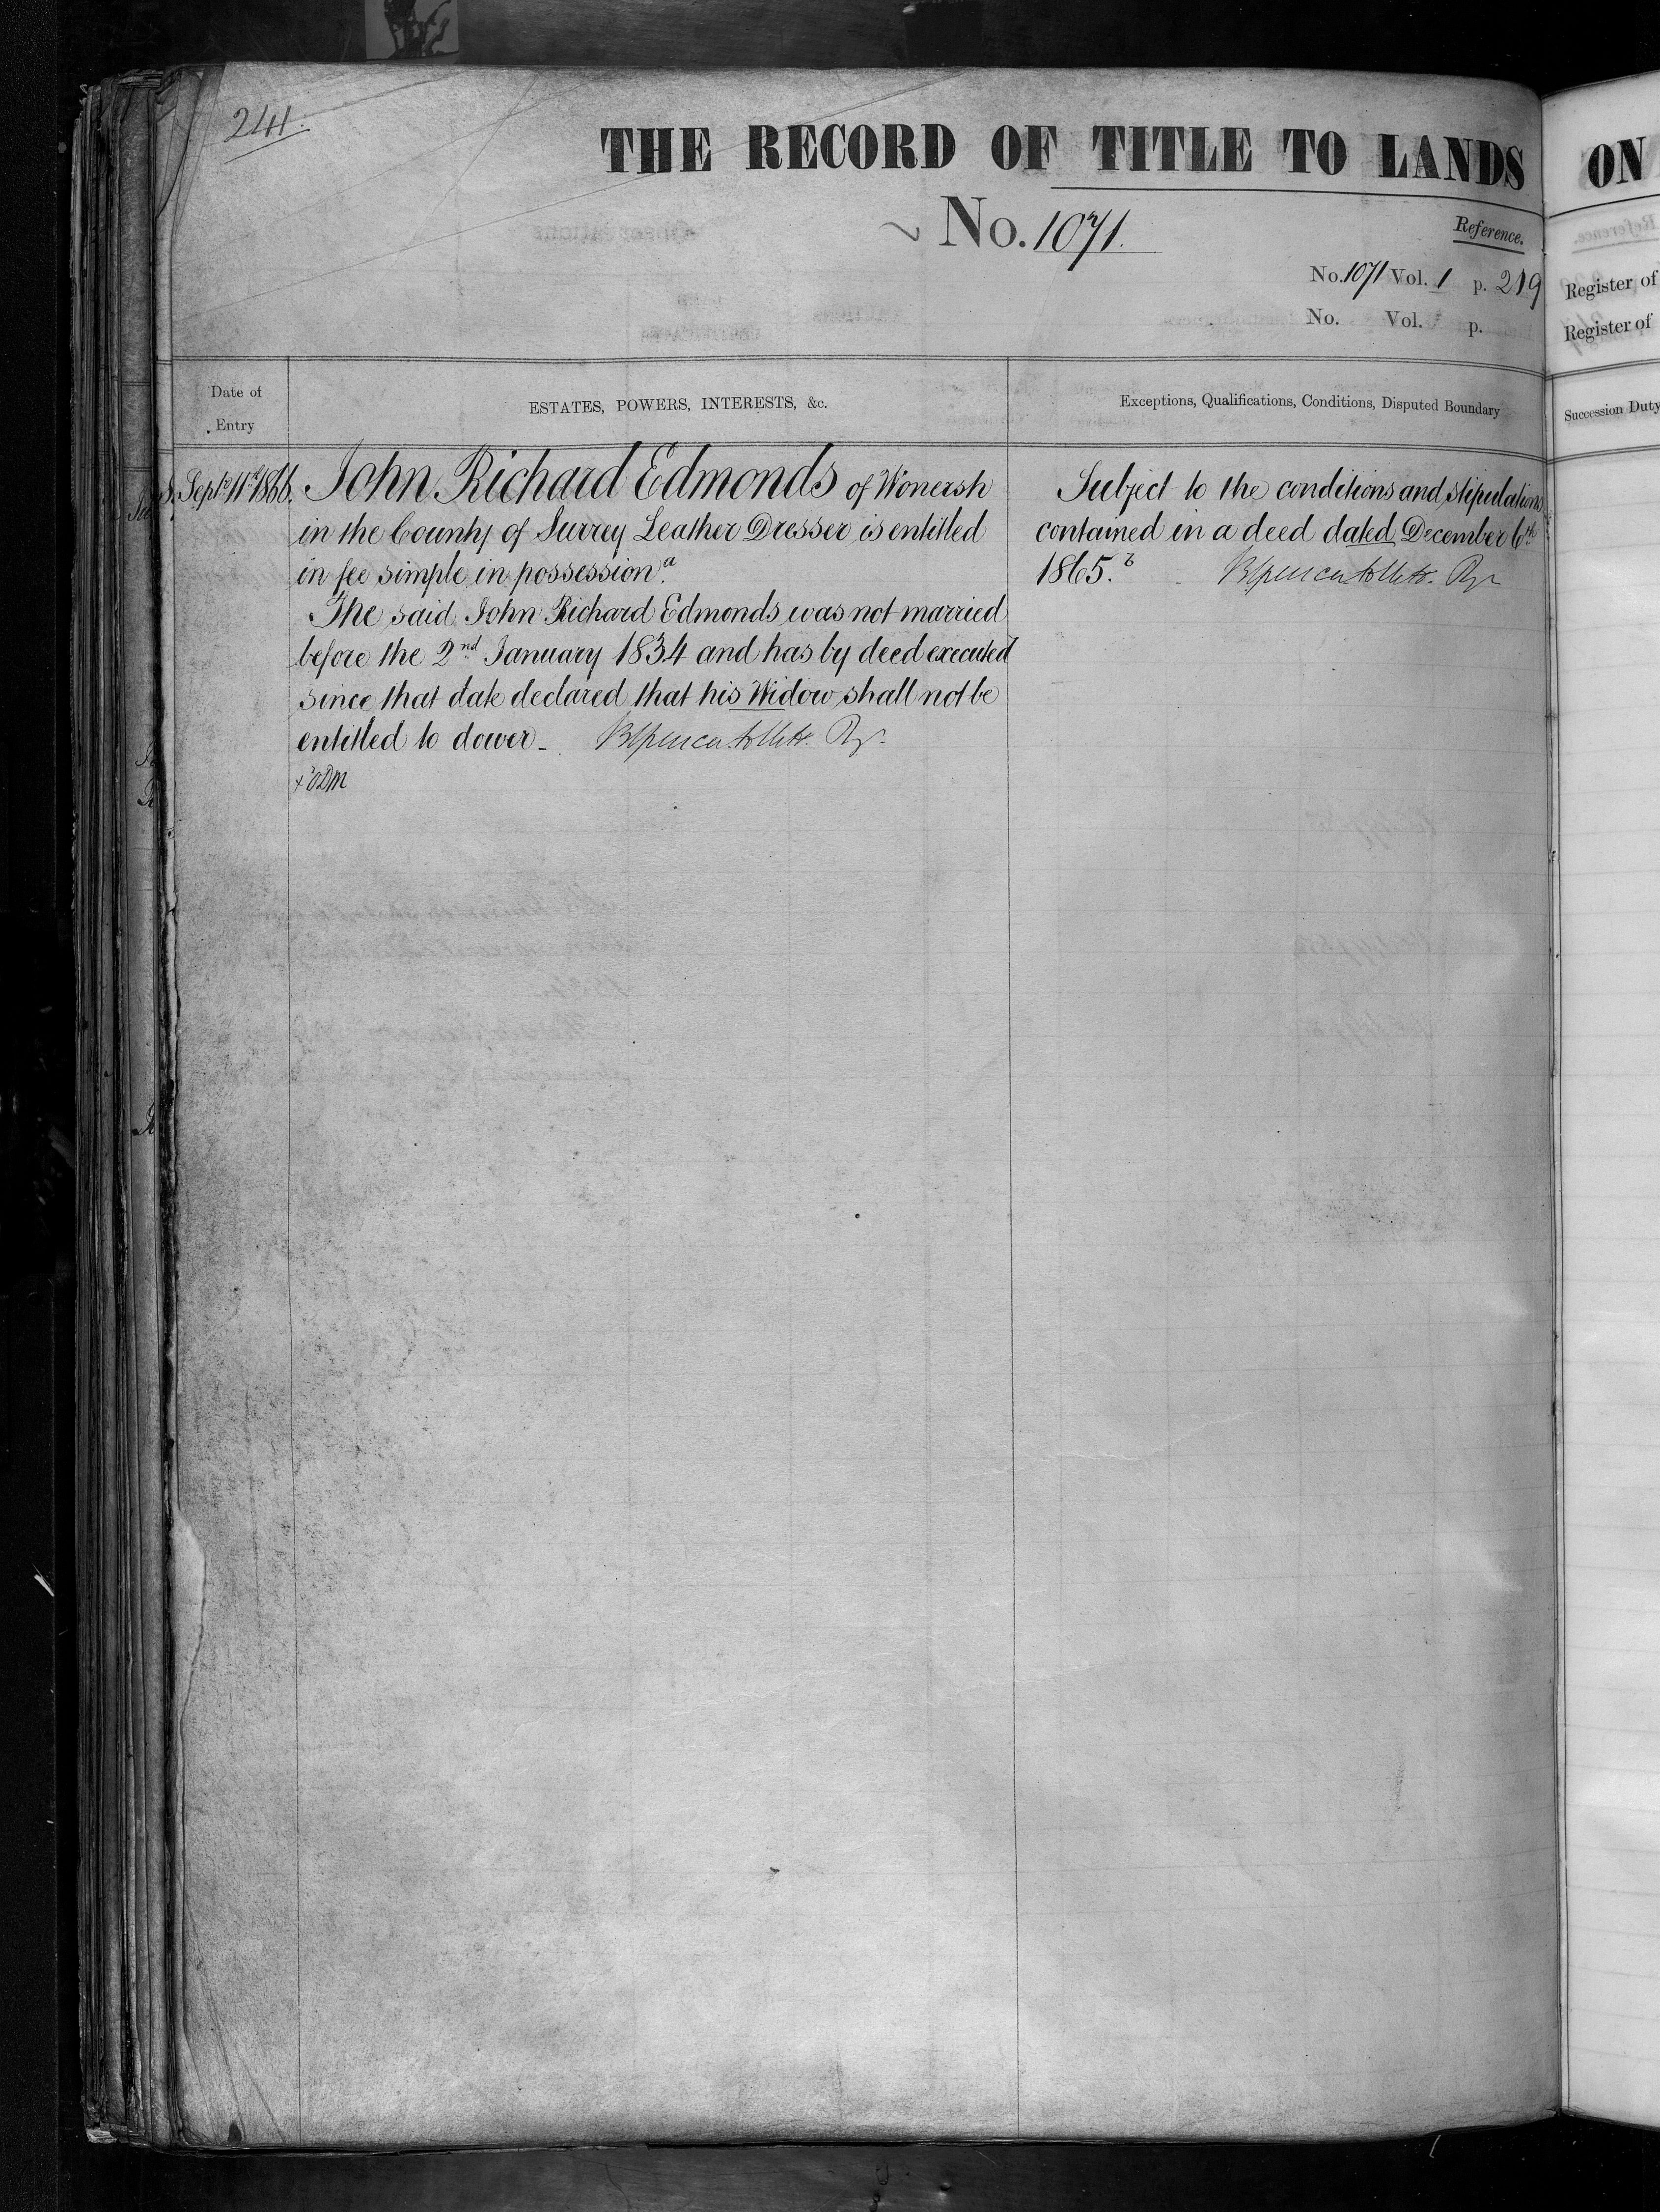 241.
THE RECORD OF TITLE TO LANDS
ON
No. 1071.
Reference.
No. 1071 Vol. 1 p. 219
No. Vol. p.
Register of
Register of
Date of
Entry
ESTATES, POWERS, INTERESTS, &c.
Exceptions, Qualifications, Conditions, Disputed Boundary
Succession Duty
Septr 11th 1866.
John Richard Edmonds of Wonersh
in the County of Surrey Leather Dresser is entitled
in fee simple in possession.a
The said John Richard Edmonds was not married
before the 2nd January 1834 and has by deed executed
since that date declared that his Widow shall not be
entitled to dower_
Subject to the conditions and stipulations
contained in a deed dated December 6th
1865.b